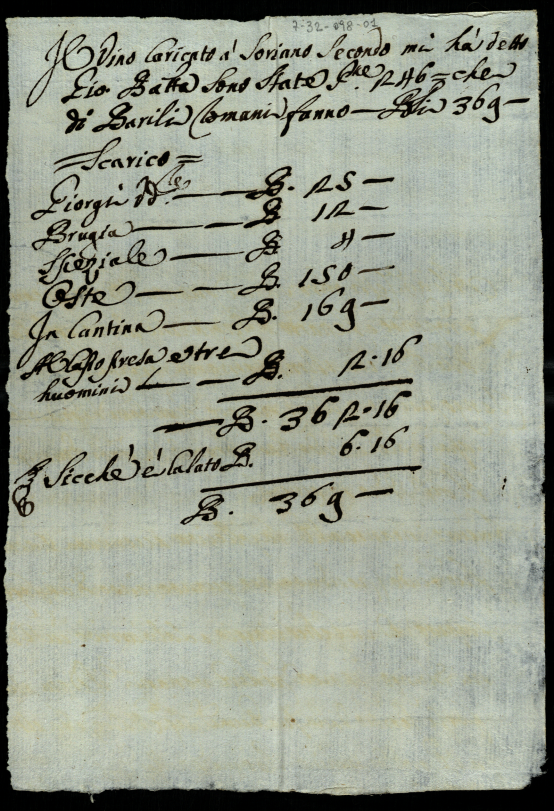 7-32-098-01
Il Vino Caricato à Soriano Secondo mi hà detto
Gio. Batta Sono State S.me 246 = che
di Barili Comuni fanno — Bli 369 —
= Scarico =
Giorgi — B. 25 —
Brugia — B. 12 —
Speziale — B. 4 —
Oste — B. 150 —
In Cantina — B. 169 —
presa e tre
huomini — B. 2.16
— B. 362.16
Sicché è Calato B. 6.16
B. 369 —